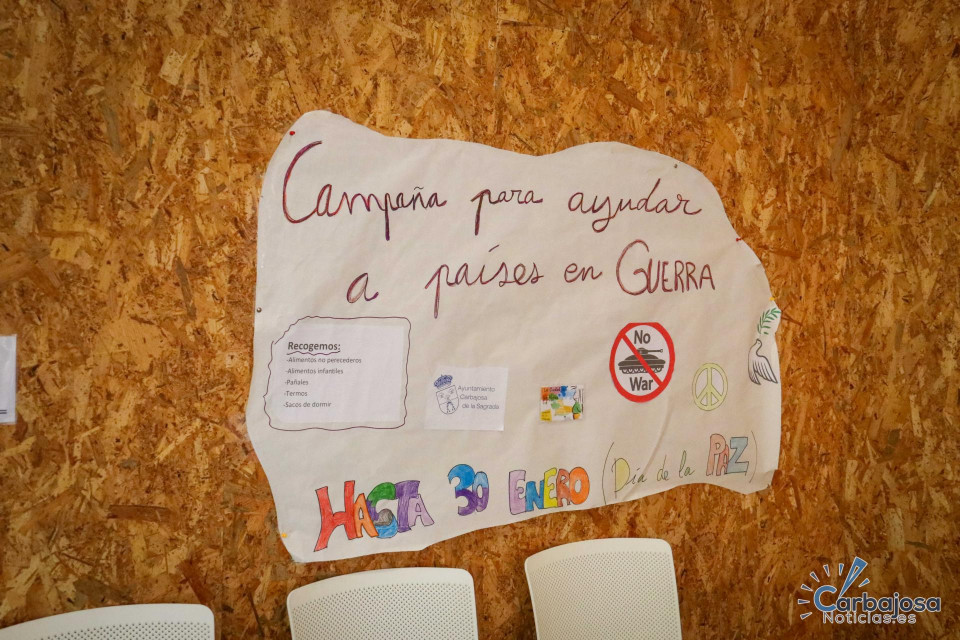 Campaña para ayudar
a países en GUERRA
Recogemos:
-Alimentos no perecederos
-Alimentos infantiles
-Pañales
-Termos
-Sacos de dormir
Ayuntamiento
Carbajosa
de la Sagrada
No
War
HASTA 30 ENERO (Día de la PAZ)
Carbajosa
Noticias.es